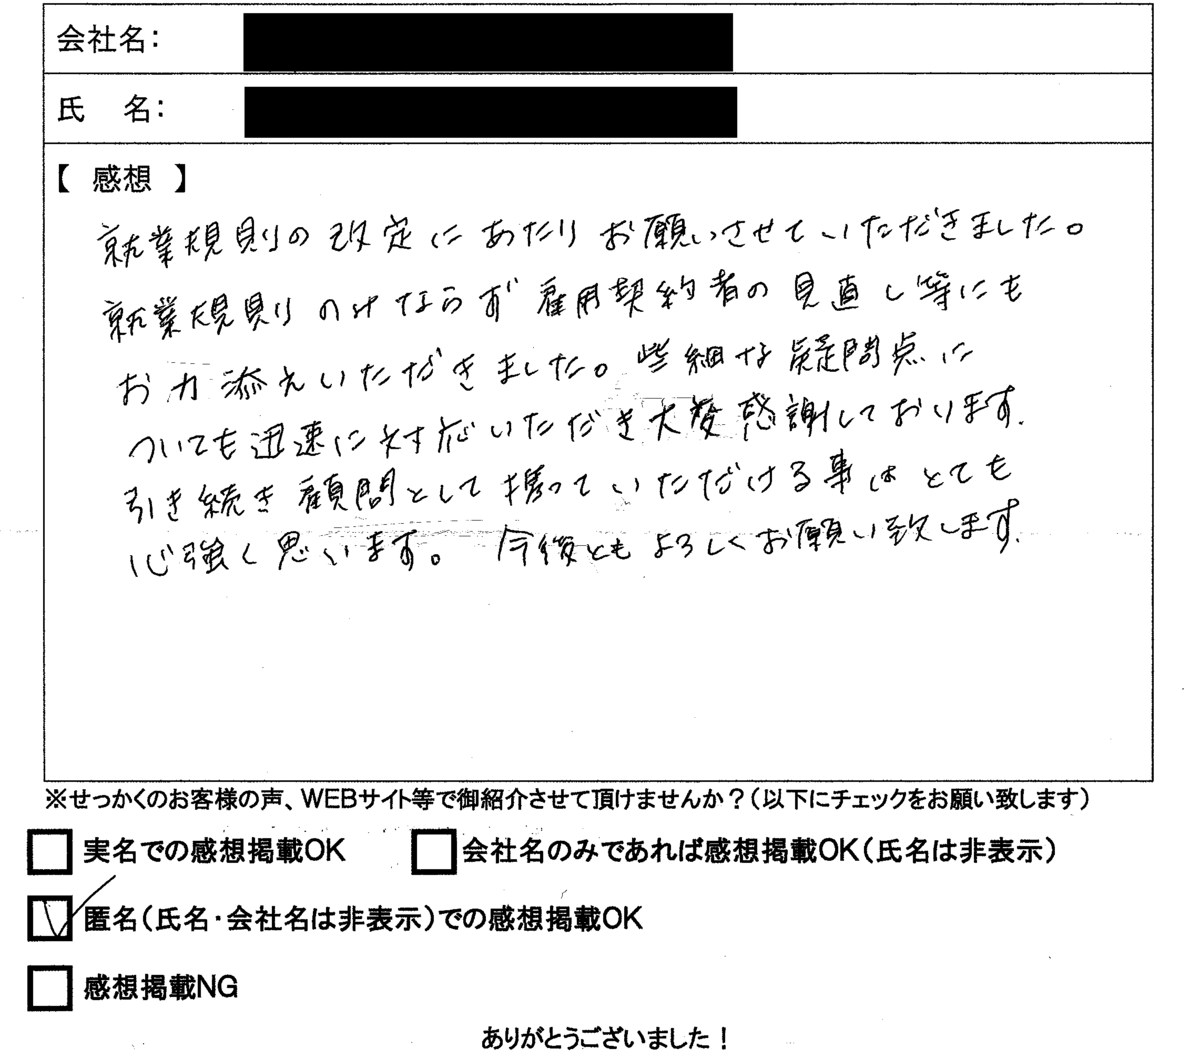 会社名：
氏　名：
【 感想 】
就業規則の改定にあたりお願いさせていただきました。
就業規則のみならず雇用契約者の見直し等にも
お力添えいただきました。些細な疑問点に
ついても迅速に対応いただき大変感謝しております.
引き続き顧問として携っていただける事はとても
心強く思います。今後ともよろしくお願い致します.
※せっかくのお客様の声、WEBサイト等で御紹介させて頂けませんか？（以下にチェックをお願い致します）
実名での感想掲載OK　会社名のみであれば感想掲載OK（氏名は非表示）
匿名（氏名・会社名は非表示）での感想掲載OK
感想掲載NG
ありがとうございました！